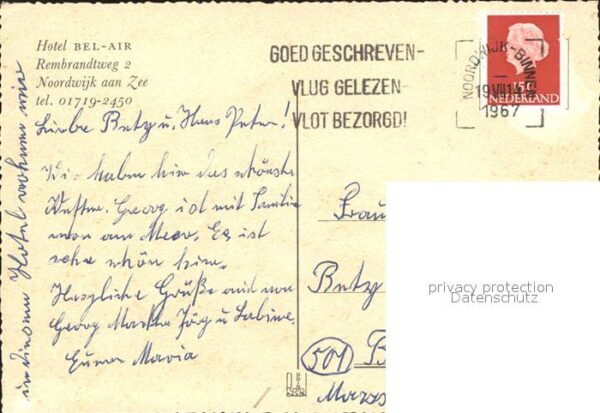 Hotel BEL-AIR
Rembrandtweg 2
Noordwijk aan Zee
tel. 01719-2450
GOED GESCHREVEN-
VLUG GELEZEN-
VLOT BEZORGD!
NOORDWIJK-BINNEN
19 VII
1967
15c
NEDERLAND
Liebe Betzy u. Hans Peter!
Wir haben hier das schönste
Wetter. Georg ist mit Familie
vorn am Meer. Es ist
sehr schön hier.
Herzliche Grüße auch von
Georg Martha Jörg u. Sabine.
Eurer Maria
in diesem Hotel wohnen wir
Frau
Betz
(501) B
privacy protection
Datenschutz